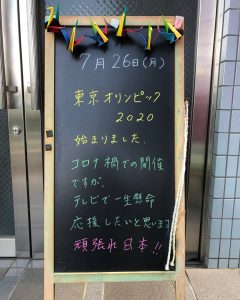 7月26日(月)
東京オリンピック
2020
始まりました。
コロナ禍での開催
ですが、
テレビで一生懸命
応援したいと思います
頑張れ日本!!